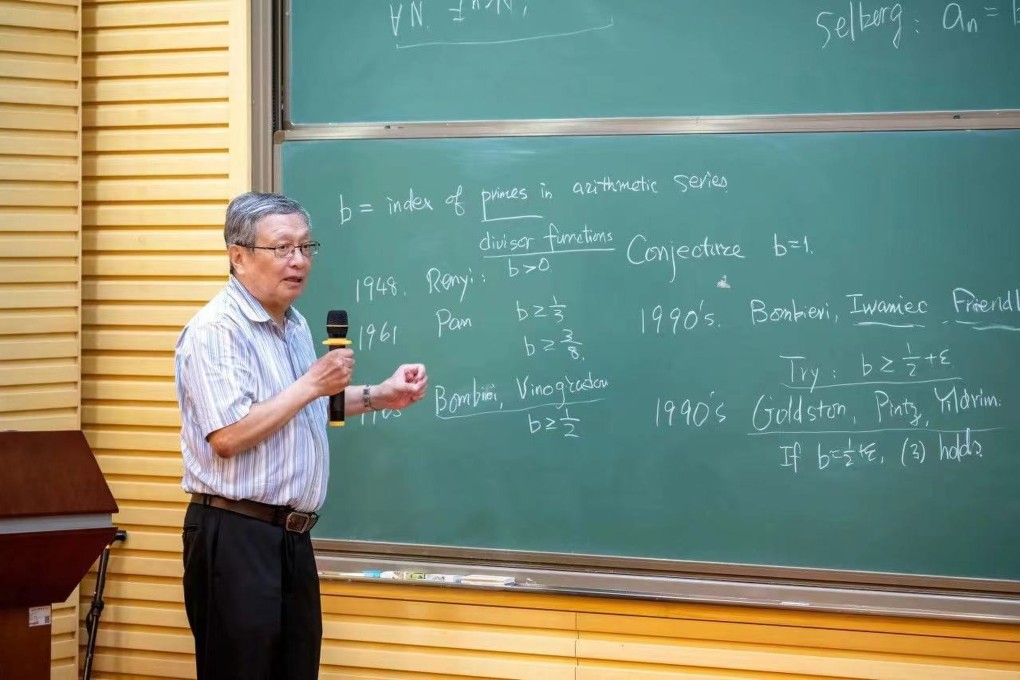 Selberg: an =
b = index of primes in arithmetic series.
divisor functions
Conjecture b=1.
1948. Renyi: b>0
1961 Pan b≥1/3
b≥3/8.
Bombieri, Vinogradov
b≥1/2
1990's. Bombieri, Iwaniec Friendl
Try: b≥1/2+ε
1990's Goldston, Pintz, Yildrim.
If b=1/2+ε, (3) holds